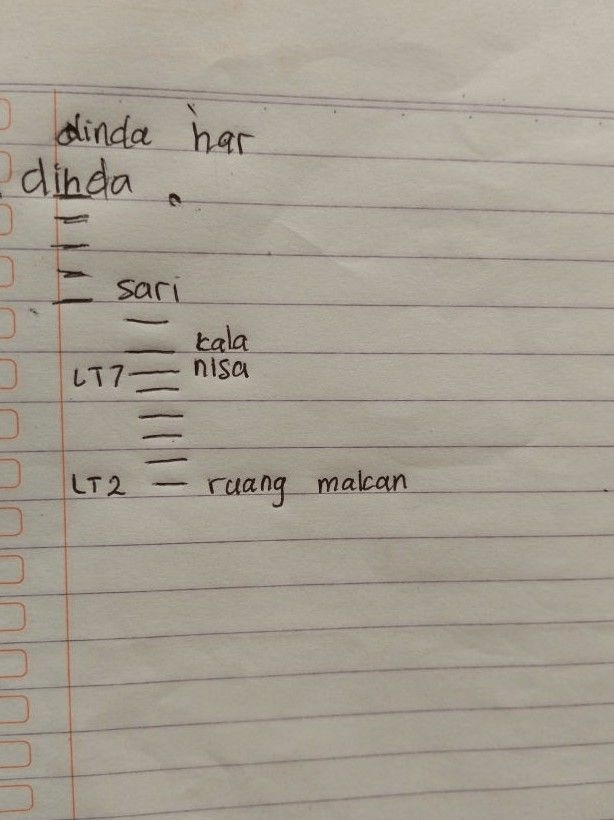 dinda har
dinda .
sari
kala
LT7 nisa
LT2 ruang makan